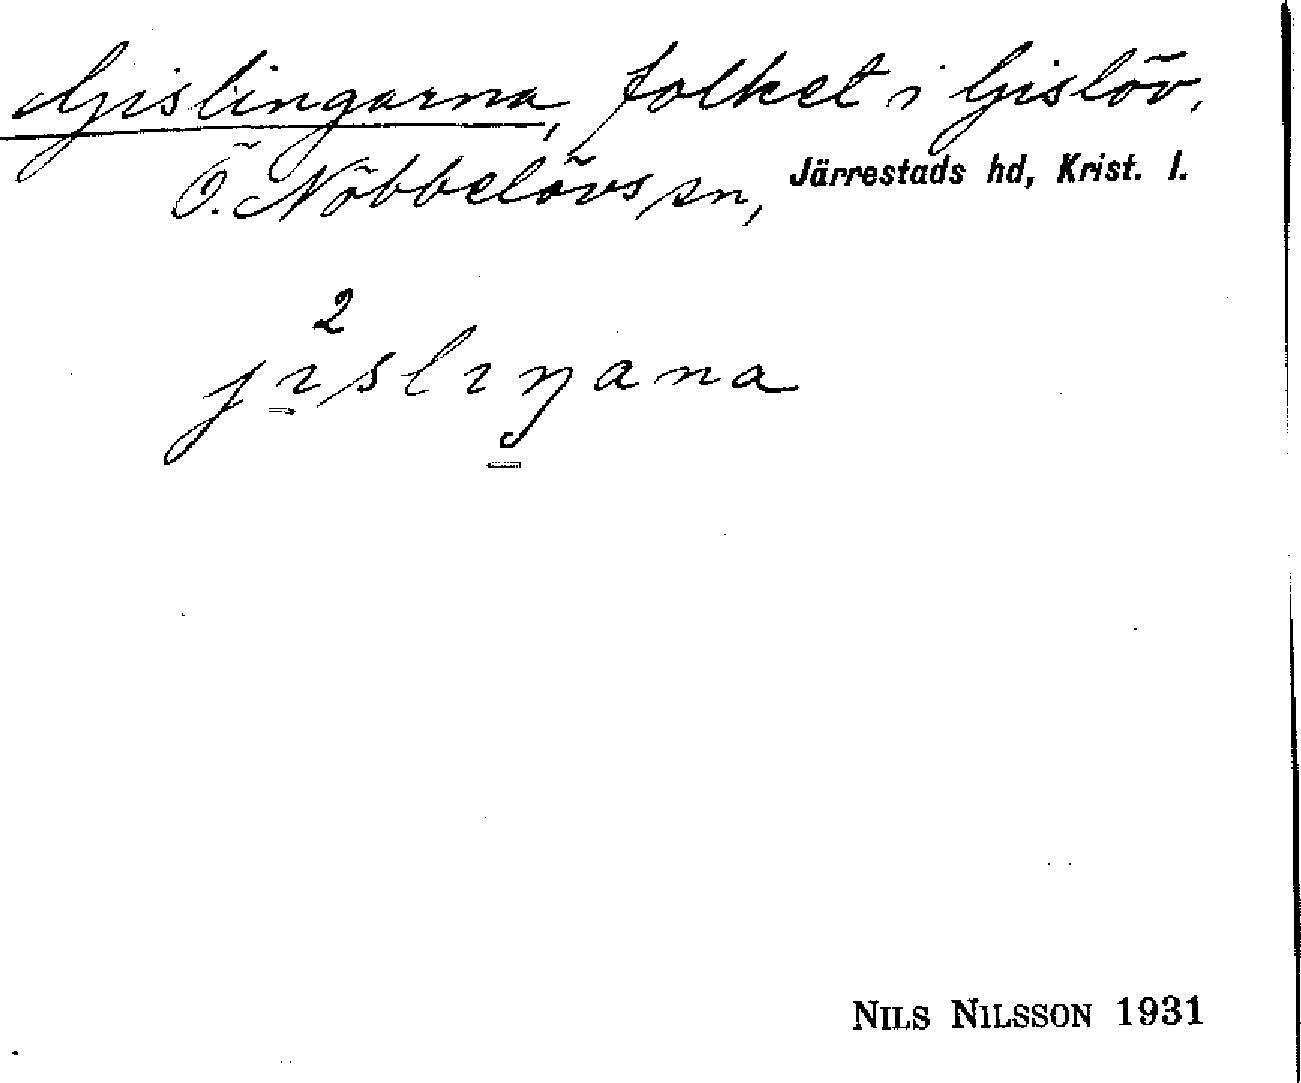 Gislingarna, folket i Gislöv,
Ö. Nöbbelövs sn, Järrestads hd, Krist. l.
2
jıslıŋana
NILS NILSSON 1931